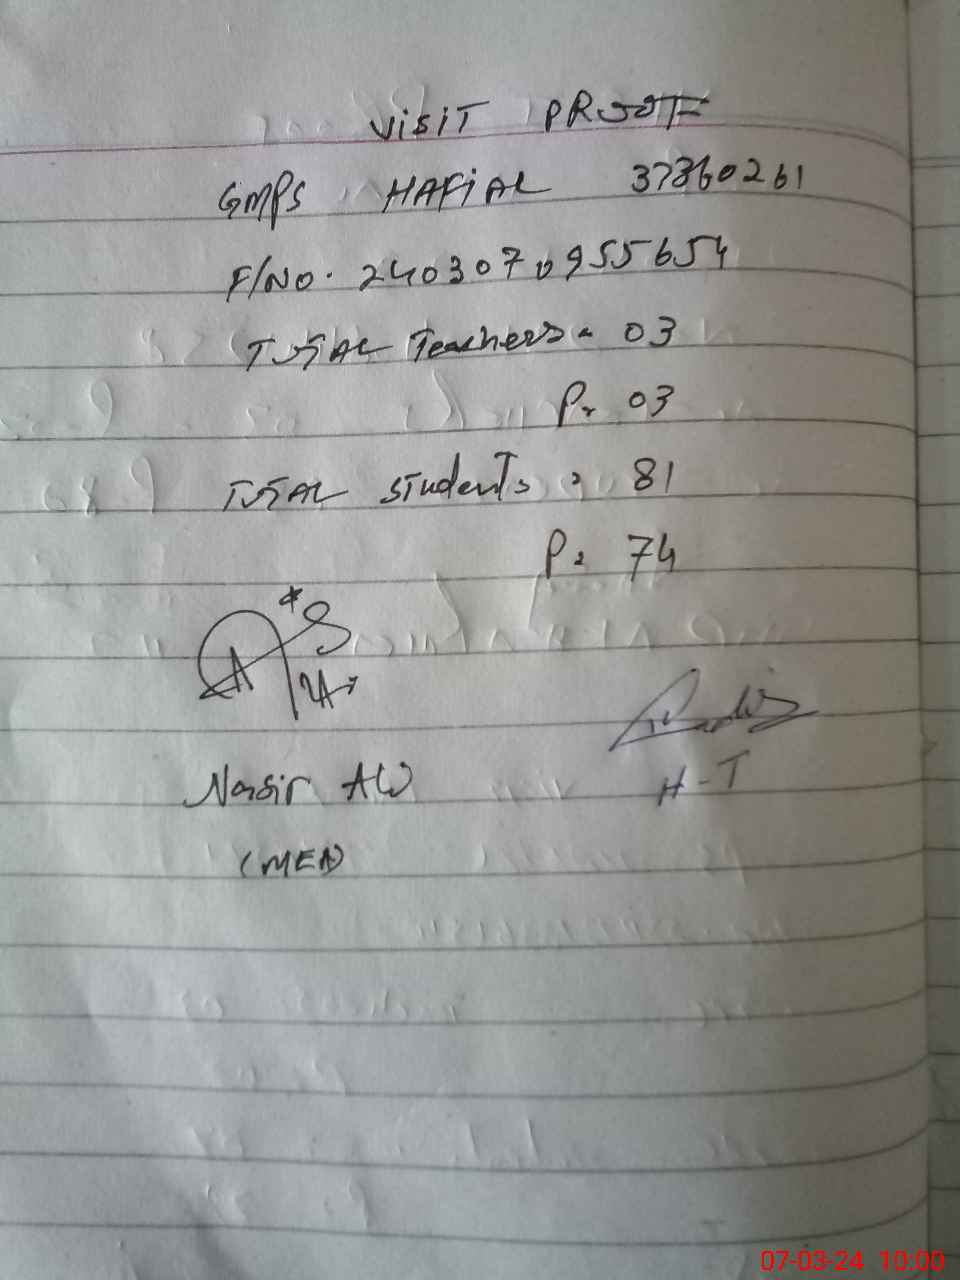 VISIT PROOF
GMPS HAFIAL 37360261
F/NO. 2403070955654
TOTAL Teachers = 03
P= 03
TOTAL students = 81
P= 74
Nasir Ali
(MEA)
H-T
07-03-24 10:00